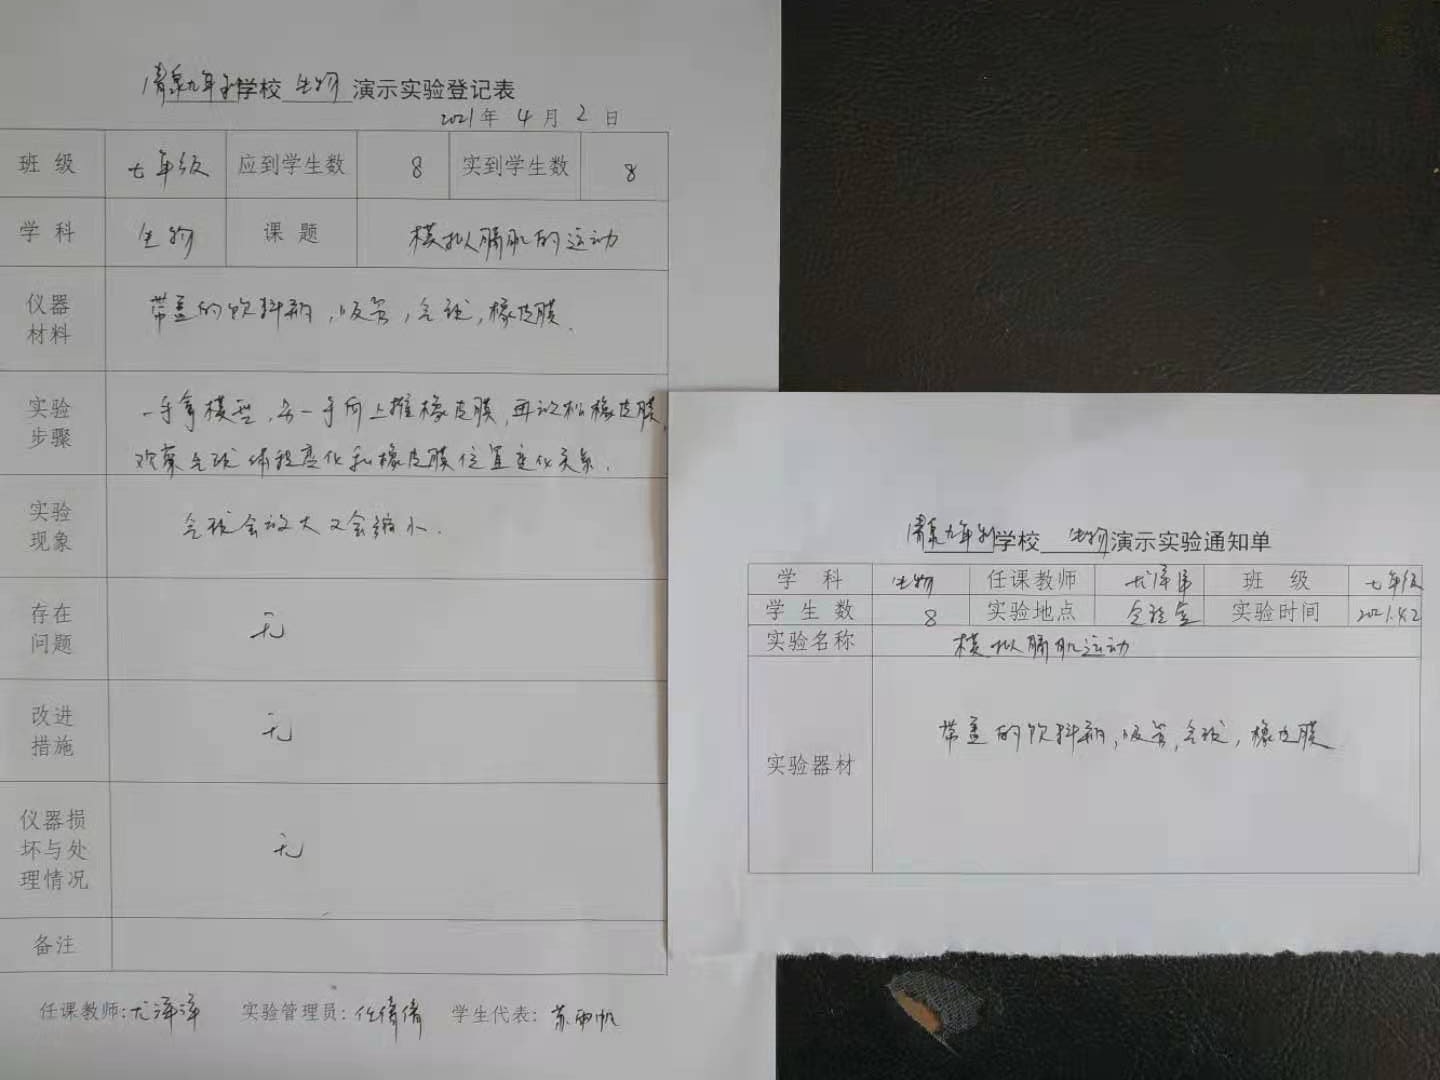 清泉九年制学校 生物 演示实验登记表
2021年 4 月 2 日
班 级 七年级 应到学生数 8 实到学生数 8
学 科 生物 课 题 模拟膈肌的运动
仪器材料 带盖的饮料瓶,吸管,气球,橡皮膜.
实验步骤 一手拿模型,另一手向上推橡皮膜,再放松橡皮膜,
观察气球体积变化和橡皮膜位置变化关系.
实验现象 气球会放大又会缩小.
存在问题 无
改进措施 无
仪器损坏与处理情况 无
备注
任课教师:尤泽泽 实验管理员:任倩倩 学生代表:苏雨帆
清泉九年制学校 生物 演示实验通知单
学 科 生物 任课教师 尤泽泽 班 级 七年级
学 生 数 8 实验地点 实验时间 2021.4.2
实验名称 模拟膈肌运动
实验器材 带盖的饮料瓶,吸管,气球,橡皮膜